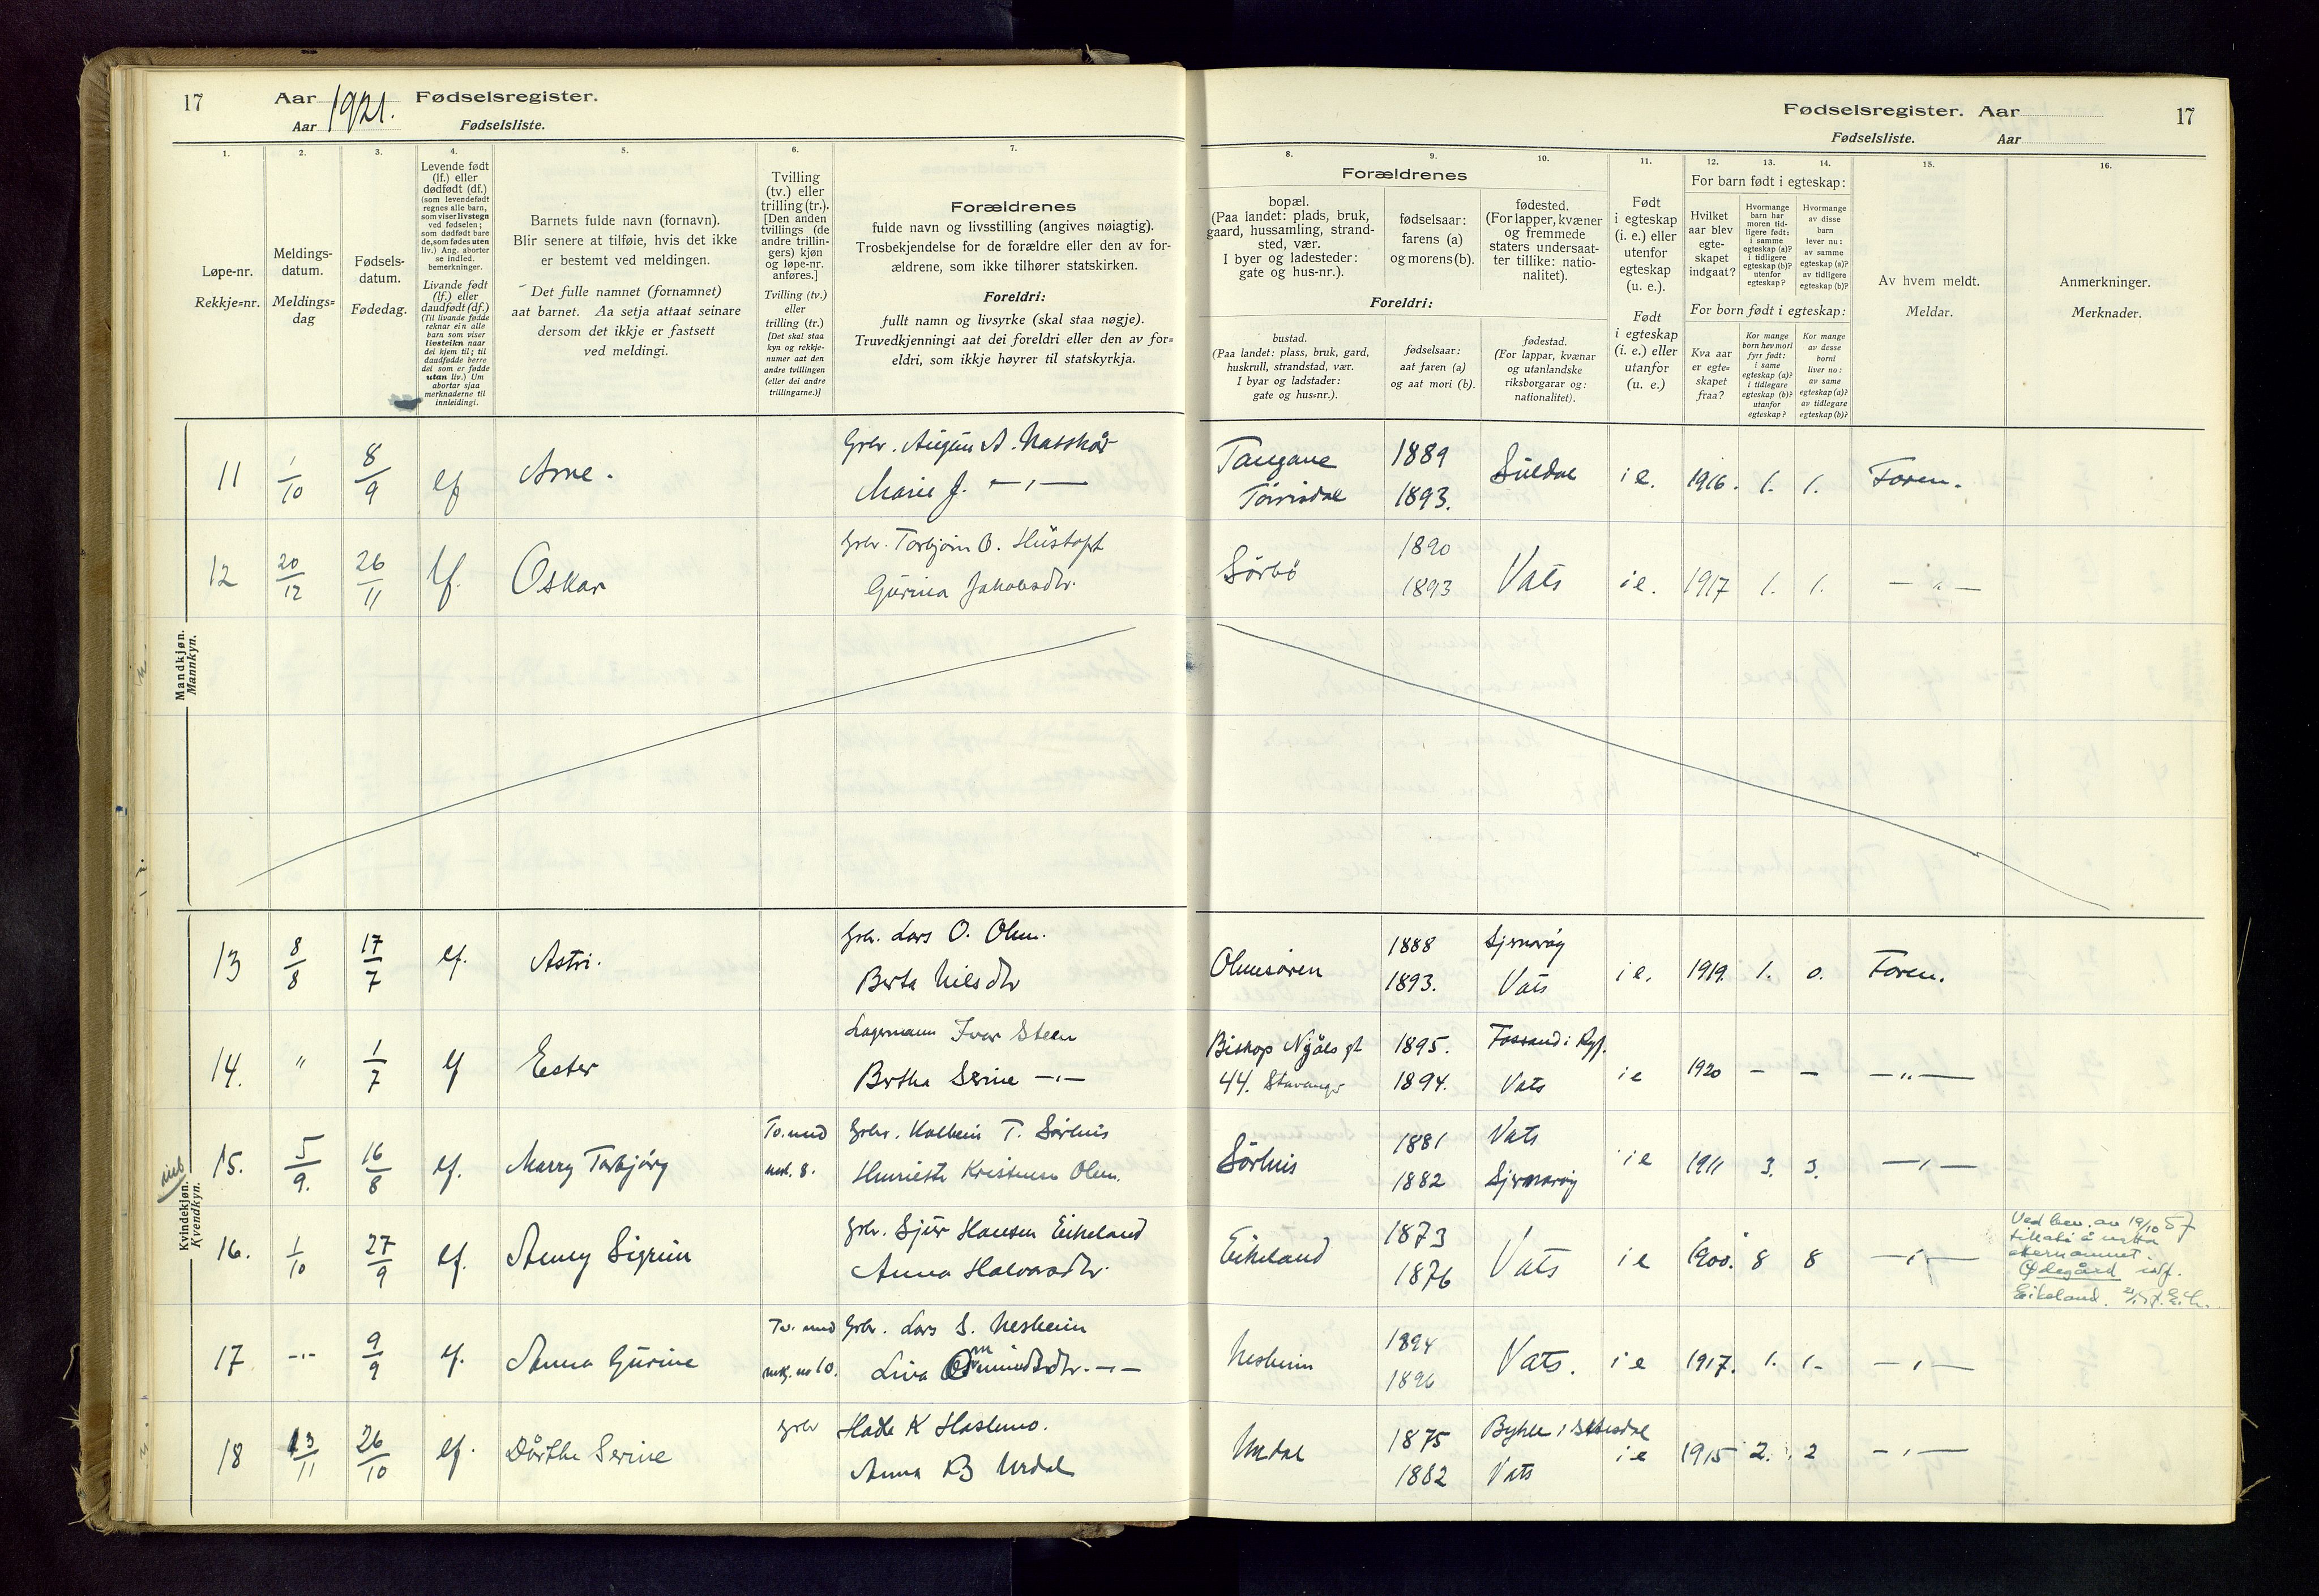 17 Aar 1921. Fødselsregister.
Aar Fødselsliste.
1. 2. 3. 4. 5. 6. 7.
Løpe-nr.
Rekkje=nr.
Meldings-
datum.
Meldings=
dag
Fødsels-
datum.
Fødedag.
Levende født
(lf.) eller
dødfødt (df.)
(som levendefødt
regnes alle barn,
som viser livstegn
ved fødselen;
som dødfødt bare
de, som fødes uten
liv.) Ang. aborter
se indled.
bemerkninger.
Livande født
(lf.) eller
daudfødt (df.)
(Til livande fødde
reknar ein alle
barn som viser
livsteikn naar
dei kjem til; til
daudfødde berre
dei som er fødde
utan liv.) Um
abortar sjaa
merknaderne til
innleidingi.
Barnets fulde navn (fornavn).
Blir senere at tilføie, hvis det ikke
er bestemt ved meldingen.
Det fulle namnet (fornamnet)
aat barnet. Aa setja attaat seinare
dersom det ikkje er fastsett
ved meldingi.
Tvilling
(tv.) eller
trilling (tr.).
[Den anden
tvillings (de
andre trillin-
gers) kjøn
og løpe-nr.
anføres.]
Tvilling (tv.)
eller
trilling (tr.)
[Det skal staa
kyn og rekkje-
numer aat den
andre tvillingen
(eller dei andre
trillingarne.)]
Forældrenes
fulde navn og livsstilling (angives nøiagtig).
Trosbekjendelse for de forældre eller den av for-
ældrene, som ikke tilhører statskirken.
Foreldri:
fullt namn og livsyrke (skal staa nøgje).
Truvedkjenningi aat dei foreldri eller den av for=
eldri, som ikkje høyrer til statskyrkja.
Mandkjøn.
Mannkyn.
11 1/10 8/9 lf Arne. Grbr. Augun A. Natskår
Marie J. —"—
12 20/12 26/11 lf. Oskar Grbr. Torbjørn O. Hustoft
Gurina Jakobsdtr.
Kvindekjøn.
Kvendkyn.
13 8/8 17/7 lf. Astri. Grbr. Lars O. Olum.
Berta Nilsdtr
14. " 1/7 lf Ester Lagermann Ivar Steen
Bertha Serine —"—
15. 5/9. 16/8 lf. Marry Torbjørg Tv. med Grbr. Kolbein T. Sørhus
mk. 8. Henriette Kristense Olum.
16. 1/10 27/9 lf. Anny Sigrun Grbr. Sjur Hansen Eikeland
Anna Halvorsdtr.
17 —"— 9/9 lf. Anna Gurine Tv. med Grbr. Lars S. Nesheim
mk. no 10. Liva Omundsdtr. —"—
18 13/11 26/10 lf. Dårthe Serine grbr K Haslemo.
Anna B Urdal
Fødselsregister. Aar 17
Fødselsliste. Aar
8. 9. 10. 11. 12. 13. 14. 15. 16.
Forældrenes
bopæl.
(Paa landet: plads, bruk,
gaard, hussamling, strand-
sted, vær.
I byer og ladesteder:
gate og hus-nr.).
fødselsaar:
farens (a)
og morens (b).
fødested.
(For lapper, kvæner
og fremmede
staters undersaat-
ter tillike: natio-
nalitet).
Foreldri:
bustad.
(Paa landet: plass, bruk, gard,
huskrull, strandstad, vær.
I byar og ladstader:
gate og hus=nr.).
fødselsaar:
aat faren (a)
og aat mori (b).
fødestad.
(For lappar, kvænar
og utanlandske
riksborgarar og:
nationalitet).
Født
i egteskap
(i. e.) eller
utenfor
egteskap
(u. e.).
Født
i egteskap
(i. e.) eller
utanfor
(u. e.)
For barn født i egteskap:
Hvilket
aar blev
egte-
skapet
indgaat?
Hvormange
barn har
moren tid-
ligere født:
i samme
egteskap (a)?
i tidligere
egteskap (b)?
utenfor
egteskap?
Hvormange
av disse
barn
lever nu:
av samme
egteskap (a)?
av tidligere
egteskap (b)?
For born født i egteskap:
Kva aar
er egte=
skapet
fraa?
Kor mange
born hev mori
fyrr født:
i same
egteskap (a)?
i tidlegare
egteskap (b)?
utanfor
egteskap?
Kor mange
av desse
borni
liver no:
av same
egteskap (a)?
av tidlegare
egteskap (b)?
Av hvem meldt.
Meldar.
Anmerkninger.
Merknader.
Tangane 1889 Suldal i e. 1916. 1. 1. Foren.
1893.
Sørbø 1890 Vats i e. 1917 1. 1. —"—
1893
Olumsøren 1888 Sjernarøy i e. 1919. 1. 0. Foren.
1893. Vats
Biskop Njåls gt 1895. Fossand i Ryf. i e 1920 — — —"—
44. Stavanger 1894. Vats
Sørhus 1881 Vats i e 1911 3. 3. —"—
1882 Sjernarøy
Eikeland 1873 Vats i e 1900. 8 8 —"—
1876
Ved bev. av 19/10 57
tillate å nytta
etternamnet.
Ødegård istf.
Eikeland.
Nesheim 1894 Vats. i e 1917. 1. 1. —"—
1896
Urdal 1875 Bykle i Setesdal i e 1915 2. 2 —"—
1882 Vats